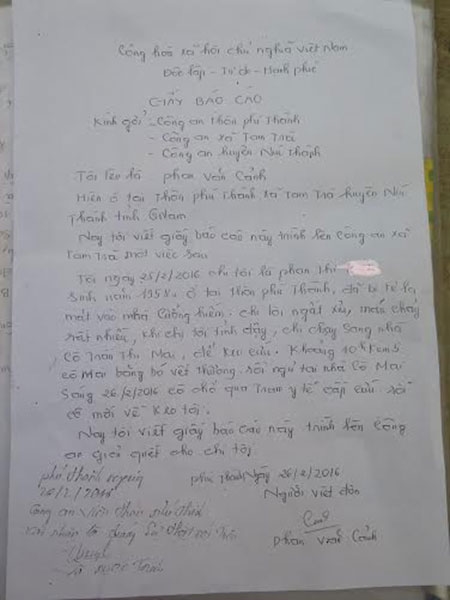 Cộng hoà xã hội chủ nghĩa việt Nam
Độc lập - Tự do - Hạnh phúc
GIẤY BÁO CÁO
Kính gởi - Công an thôn phú Thành
- Công an xã Tam Trà
- Công an huyện Núi Thành
Tôi tên là : phan văn Cảnh
Hiện ở tại Thôn phú Thành xã Tam Trà huyện Núi
Thành tỉnh QNam
Nay tôi viết giấy báo cáo này trình lên Công an xã
Tam Trà một việc sau
Tối ngày 25/2/2016 chị tôi là phan Thị
Sinh năm 1958 ở tại thôn phú Thành, đã bị kẻ lạ
mặt vào nhà chị tôi ngất xỉu, máu chảy
rất nhiều, khi chị tôi tỉnh dậy, chị chạy sang nhà
Cô Trần Thị Mai, để kêu cứu. Khoảng 10h
cô Mai băng bó vết thương rồi ngủ tại nhà Cô Mai
Sáng 26/2/2016 cô chở qua Trạm y tế cấp cứu rồi
cô mới về kêu tôi.
Nay Tôi viết giấy báo cáo này trình lên Công
an giải quyết cho chị tôi
phú Thành ngày 26/2/2016
Người viết đơn
phan văn Cảnh
phú Thành ngày
Công an viên thôn